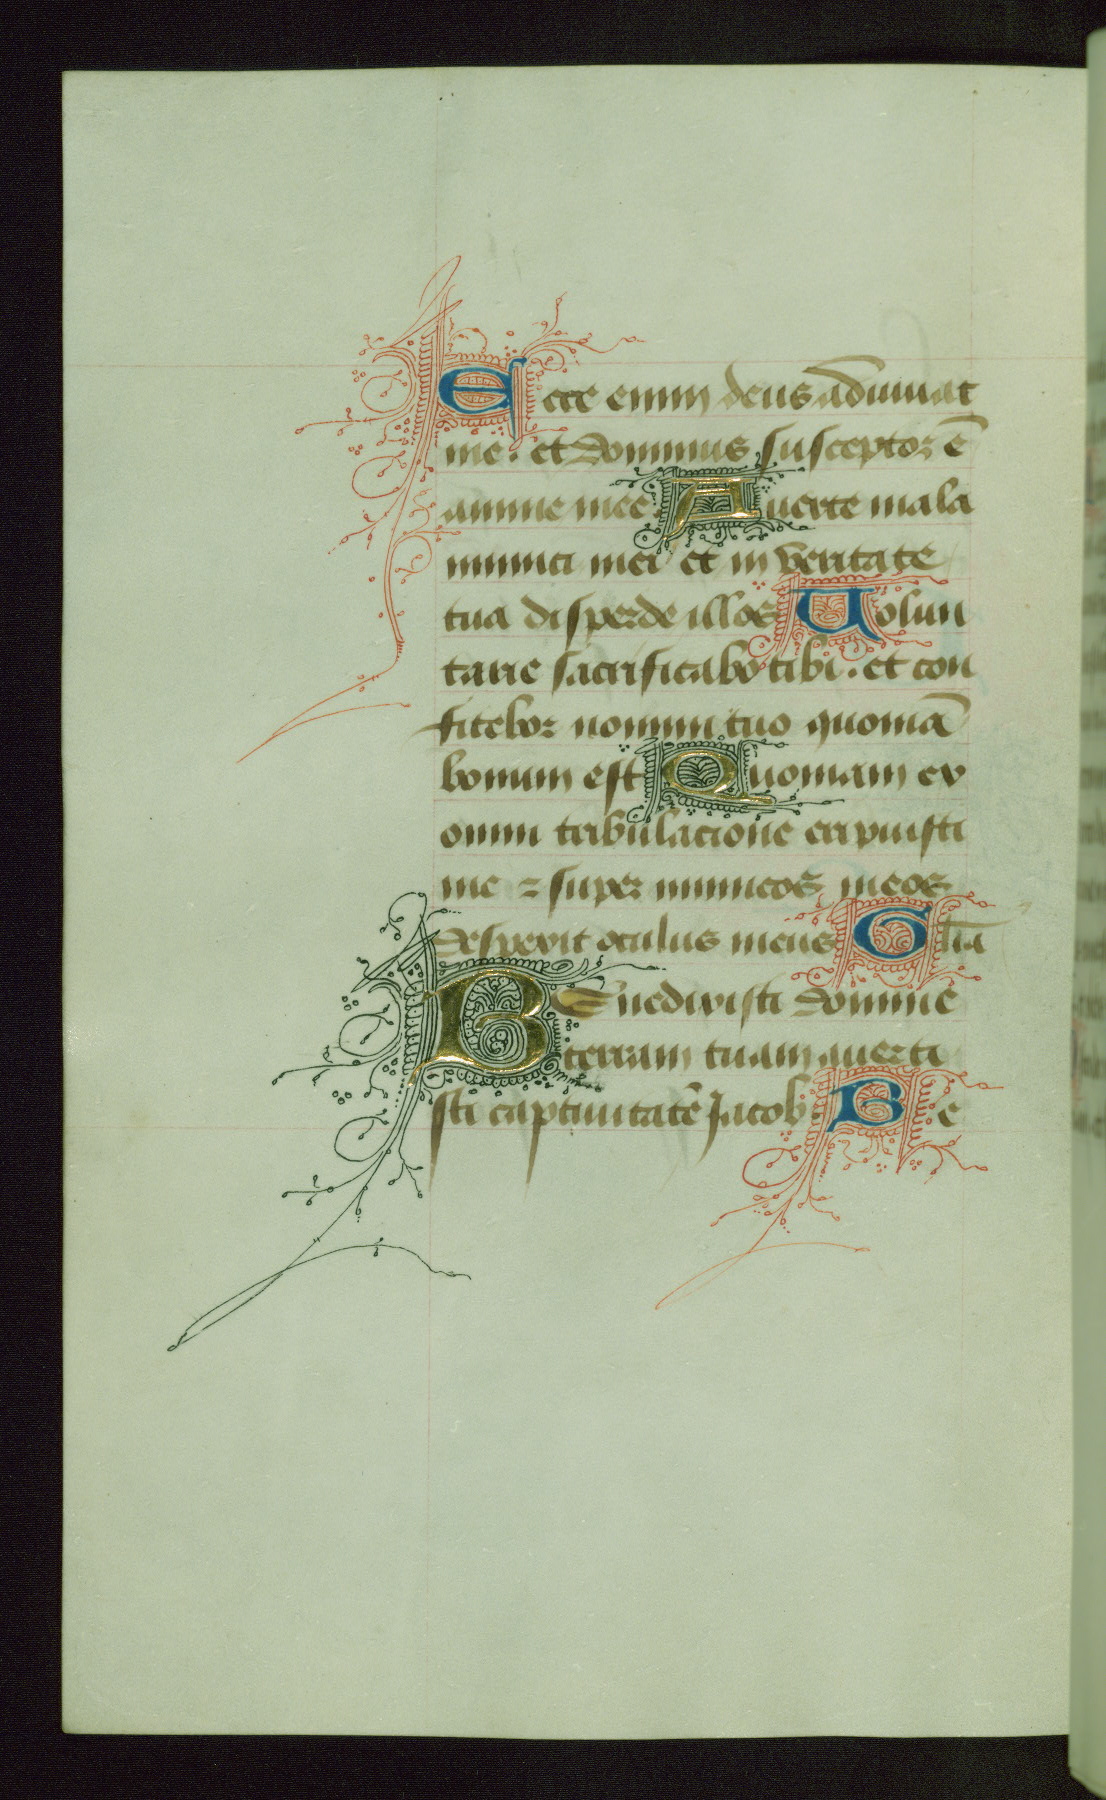 Ecce enim deus adiuuat
me. et dominus susceptor ē
anime mee. Auerte mala
inimici mei et in veritate
tua disperde illos Uolun
tarie sacrificabo tibi. et con
fitebor nomini tuo quoniā
bonum est Quoniam ex
omni tribulacione eripuisti
me ⁊ super inimicos meos
despexit oculus meus Gl̄ia
BEnedixisti domine
terram tuam auerti
sti captiuitatē Jacob Be